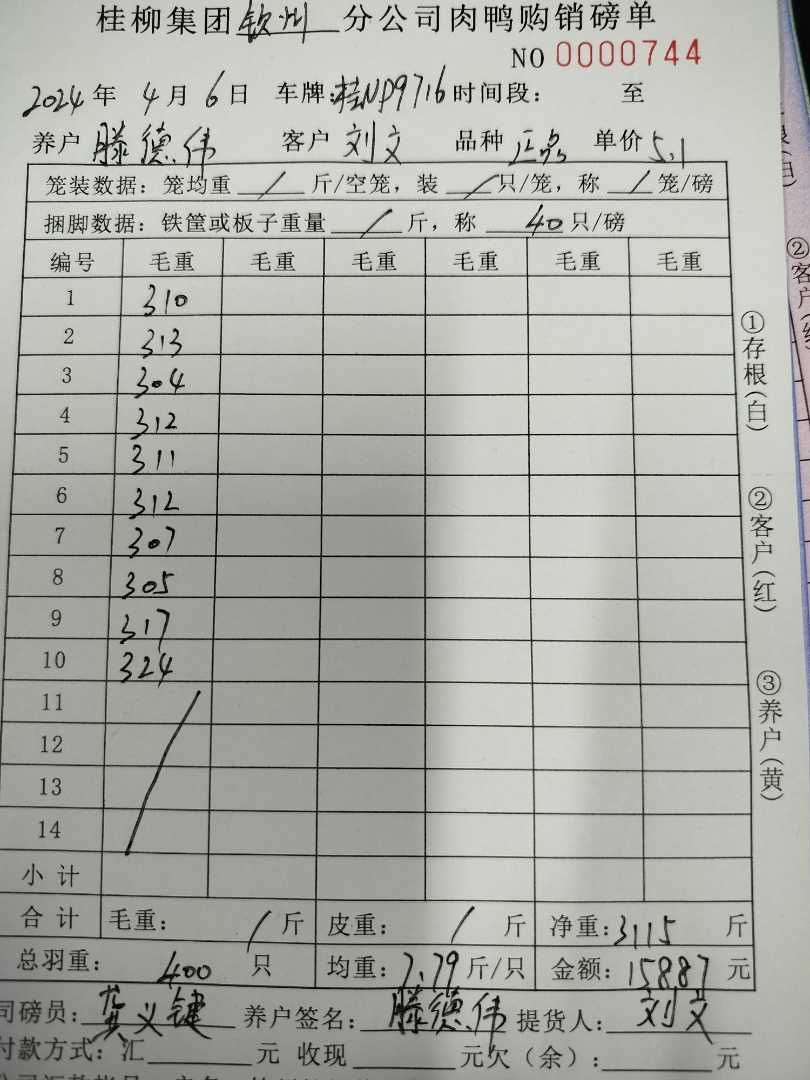 桂柳集团钦州分公司肉鸭购销磅单
NO 0000744
2024年 4月 6日 车牌:桂NP9716 时间段: 至
养户 滕德伟 客户 刘文 品种 正品 单价 5.1
笼装数据: 笼均重 / 斤/空笼, 装 / 只/笼, 称 / 笼/磅
捆脚数据: 铁筐或板子重量 / 斤, 称 40 只/磅
编号 毛重 毛重 毛重 毛重 毛重 毛重
1 310
2 313
3 304
4 312
5 311
6 312
7 307
8 305
9 317
10 324
11
12
13
14
小计
合计 毛重: / 斤 皮重: / 斤 净重:3115 斤
总羽重: 400 只 均重:7.79 斤/只 金额:15887 元
司磅员: 龚义键 养户签名: 滕德伟 提货人: 刘文
付款方式: 汇 元 收现 元欠(余): 元
①存根(白)
②客户(红)
③养户(黄)
②客户(红